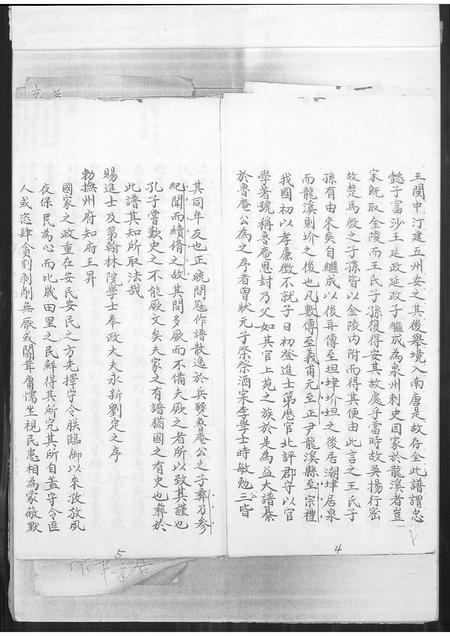 王閩中汀建五州安之其後舉境入南唐是故存全此譜謂忠
懿子富沙王延政延政子繼成為泉州刺史因家於龍溪者豈
宋既取金陵而王氏子孫復得安其故處乎當時故吳揚行密
故楚馬殷之子孫皆以金陵內附而得其便由此言之王氏子
孫有由來矣自繼成以後再傳至坦坦之後居潮居泉
而龍溪則之後也凡數傳至義甫元至正尹龍溪縣至宗禮
我國初以孝廉徵不就子日初登進士第歷官北評郡守以官
學著號稱魯庵恩封乃父如其官上苑之族於是為益大譜纂
於魯庵公為之序者曾狀元子棨祭酒宋李學士時敏勉三皆
4
其同年友也正統間冦作譜散逸於兵燹魯庵公之子彝乃參
紀聞而續脩之故其間多厥而不備夫厥之者所以致其謹也
孔子嘗歎史之不能厥文矣夫家之有譜猶國之有史也彝於
此譜其知所取法哉
賜進士及第翰林院學士奉政大夫永新劉定之序
勅撫州府知府王昇
國家之政重在安民安民之方先擇守令朕臨御以來孜孜夙
夜保民為心而比歲田里之民鮮得其所究其所自蓋守令匪
人或恣肆貪刻剝削無厭或闒茸庸懦坐視民患相為蒙蔽默
5